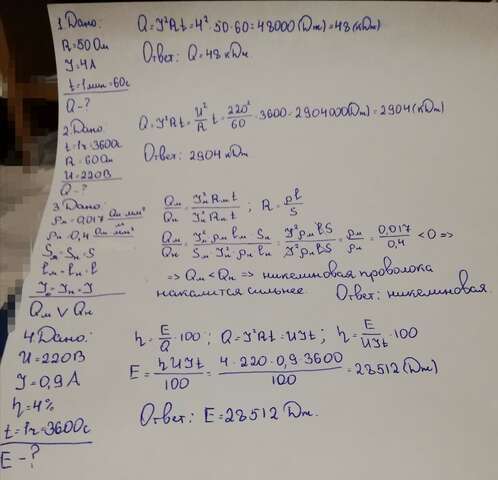 1. Дано:
R = 50 Ом
I = 4А
t = 1 мин = 60с
Q - ?
Q = I²Rt = 4² · 50 · 60 = 48000 (Дж) = 48 (кДж)
Ответ: Q = 48 кДж
2. Дано:
t = 1ч = 3600с
R = 60 Ом
U = 220В
Q - ?
Q = I²Rt = U²/R t = 220²/60 · 3600 = 2904000 (Дж) = 2904 (кДж)
Ответ: 2904 кДж
3. Дано:
ρм = 0,017 Ом мм²/м
ρн = 0,4 Ом мм²/м
Sм = Sн = S
lм = lн = l
Iм = Iн = I
Qм V Qн
Qм/Qн = Iм² Rм t/Iн² Rн t ; R = ρl/S
Qм/Qн = Iм² ρм lм Sн/Sм Iн² ρн lн = I² ρм l S/I² ρн l S = ρм/ρн = 0,017/0,4 < 0 =>
=> Qм < Qн => никелиновая проволока
накалится сильнее
Ответ: никелиновая.
4. Дано:
U = 220В
I = 0,9А
η = 4%
t = 1ч = 3600с
E - ?
η = E/Q · 100 ; Q = I²Rt = UIt ; η = E/UIt · 100
E = ηUIt/100 = 4 · 220 · 0,9 · 3600/100 = 28512 (Дж)
Ответ: E = 28512 Дж.